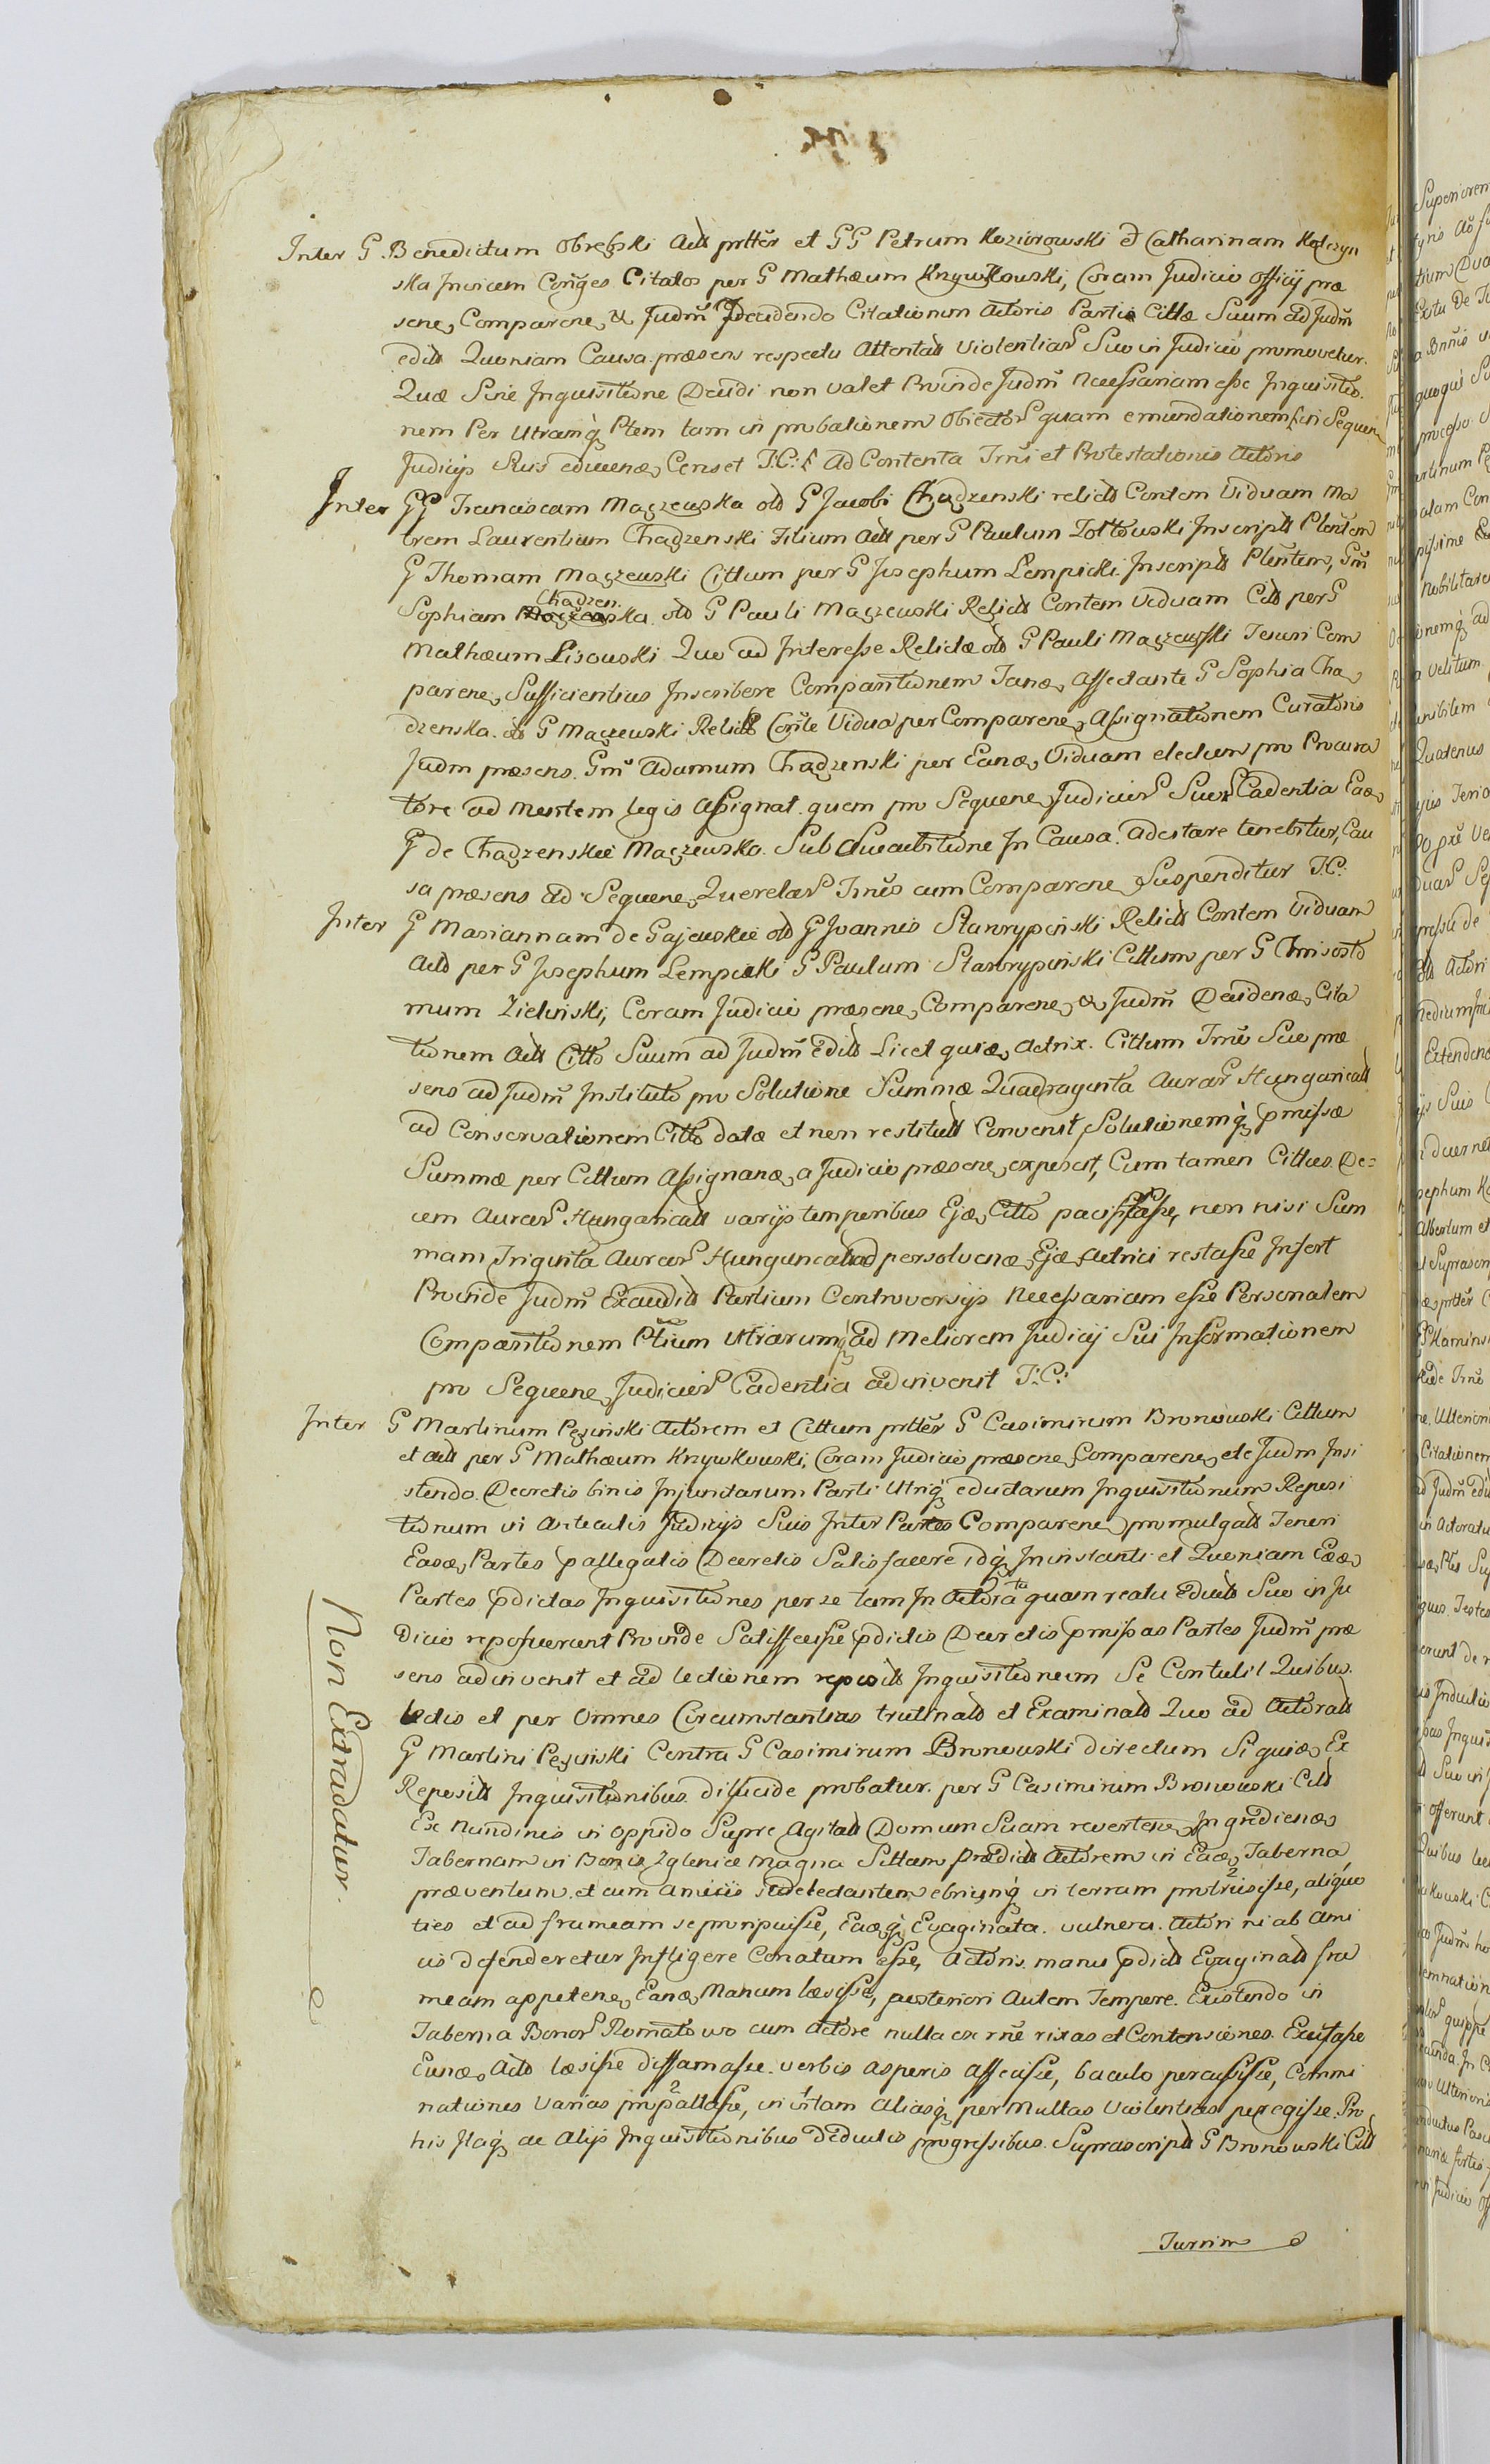 Inter G. Benedictum Obrębski Actt prttēr et GG Petrum Koziorowski et Catharinam Kolczyn
ska Invicem Conjges Citatos per G Mathæum Krzywkowski, Coram Judicio Officij præ
sene, Comparene, & Judm̄ Decidendo Citationem Actoris Partis Cittæ Suum ad Judm̄
editt Quoniam Causa præsens respectu Attentatt Violentiar Suo in Judicio promovetur.
Quæ Sine Inquisitione Decidi non valet Proinde Judm̄ Necessariam esse Inquisitio
nem Per Utramq̢ Ptem tam in probationem Objector quam emundationem in Sequen
Judicijs Suis educene, Censet T.C: Ad Contenta Trm̄i et Protestationis Actoris
Inter GG Franciscam Mączewska olð G Jacobi Chądzenski relictt Contem Viduam Ma
trem Laurentium Chądzenski Filium Actt per G Paulum Zołtowski Inscriptt Pleñtem
G Thomam Mączewski Cittum per G Josephum Lempicki Inscriptt Pleñtem, Gm̄
Sophiam Chądzen ska olð G Pauli Mączewski Relictt Contem Viduam Citt per G
Mathæum Lisowski Quo ad Interesse Relictæ olð G Pauli Mączewski Teneri Com
parene, Sufficientius Inscribere Comparitionem Tanq, Affectante G Sophia Chą
dzenska olð G Mączewski Relictt Conte Vidua per Comparene, Assignationem Curatoris
Judm præsens Gm̄ Adamum Chądzenski per Eanq, Viduam electum pro Procura
tore ad mentem legis Assignat quem pro Sequene, Judicior Suor Cadentia Eaq,
G de Chądzenskie Mączewska Sub Succubitione In Causa adestare tenebitur, Cau
sa præsens ad Sequene, Querelar Trm̄os cum Comparene Suspenditur T.C:
Inter G Mariannam de Gajewskie olð G Joannis Starorypiński Relictt Contem Viduam
Actt per G Josephum Lempicki G Paulum Starorypiński Cittum per G Chrisosto
mum Zieliński, Coram Judicio præsene, Comparene, & Judm̄ Decidene, Cita
tionem Actt Citto Suum ad Judm̄ Editt Licet quiæ, Actrix Cittum Trm̄o Suo præ
sens ad Judm̄ Instituto pro Solutione Summæ Quadraginta Aurar Hungaricatt
ad Conservationem Citto datæ et non restitutt Convenit, Solutionemq̢ pmissæ
Summæ per Cittum Assignanæ, a Judicio præsene, exposcit, Cum tamen Cittus De=
cem Aurar Hungaricatt varijs temporibus Ejæ, Citto pacificasse, non nisi Sum
mam Triginta Aurar Hungaricatt ad persolvene, Ejæ, Actrici restasse Infert
Proinde Judm̄ Exauditt Partium Controversijs Necessariam esse Personalem
Comparitionem Ptium Utrarumq̢ ad Meliorem Judicij Sui Informationem
pro Sequene, Judicior Cadentia adinvenit T.C:
Inter G Martinum Pęsiński Actorem et Cittum prttēr G Casimirum Bronowski Cittum
et Actt per G Mathæum Krzywkowski, Coram Judicio præsene, Comparene, etc Judm Insi
stendo Decretis binis Injunctarum Parti Utriq̢ eductarum Inquisitionum Reposi
tionum vi Articulis Judicijs Suis Inter Partes Comparene, promulgatt Teneri
Easæ, Partes p allegatis Decretis Satisfacere idq̢ In instanti et Quoniam Eæ
Partes pdictas Inquisitiones per se tam In Actoratu quam reatu Eductt Suo in Ju
dicio reposuerunt Proinde Satisfecisse pdictis Decretis pmissas Partes Judm̄ præ
sens adinvenit et ad lectionem repositt Inquisitionem Se Contulit Quibus
lectis et per Omnes Circumstantias trutinatt et Examinatt Quo ad Actoratt
G Martini Pęsiński Contra G Casimirum Bronowski directum Si quiæ, Ex
Repositt Inquisitionibus dilucide probatur per G Casimirum Bronowski Citt
Ex Nundinis in Oppido Supre Agitatt Domum Suam revertene, Ingrediene,
Tabernam in Bonis Zglenice Magna Sittam Prædictt Actorem in Eaæ, Taberna,
præventum et cum Amicis se delectantem ebriumq̢ in terram protrusisse, aliquo
ties et ad frameam se proripuisse, Eaæq̢ Evaginata vulnera Actori ni ab Ami
cis defenderetur Infligere Conatum esse, Actoris manu pdictt Evaginatt fra
meam appetene, Eanæ, Manum læsisse, posteriori Autem Tempore Existendo in
Taberna Bonor Romatowo cum Actore nulla ex rn̄e rixas et Contensiones Excitasse
Eunæ, Actt læsisse diffamasse verbis asperis affecisse, baculo percussisse, Commi
nationes varias propallasse, in vitam Aliasq̢ per Multas Violentias peregisse. Pro
his Itaq̢ ac Alijs Inquisitionibus Deductis progressibus Suprascriptt G Bronowski Citt
Turrim
Non Extradatur